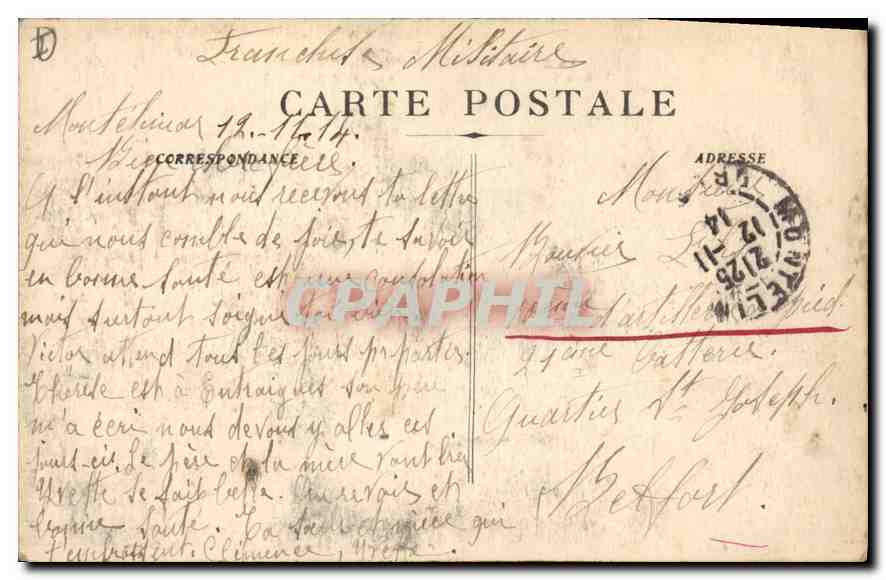 Franchise Militaire
CARTE POSTALE
Montélimar 12-11-14.
CORRESPONDANCE
Bien cher frère.
A l'instant nous recevons ta lettre
qui nous comble de joie, te savoir
en bonne santé est une consolation
mais surtout soigne
Victor attend tous les jours pr partir.
Thérèse est à Entraigues son père
m'a écri nous devons y aller ces
jours-ci. Le père et la mère vont bien
Yvette se fait belle. Au revoir et
bonne santé. Ta sœur chérie qui
t'embrassent. Clémence, Yvette
ADRESSE
Monsieur
d'artillerie à pied.
21ème batterie.
Quartier St Joseph.
Belfort.
MONTELIMAR
21 25
12 -11
14
CPAPHIL